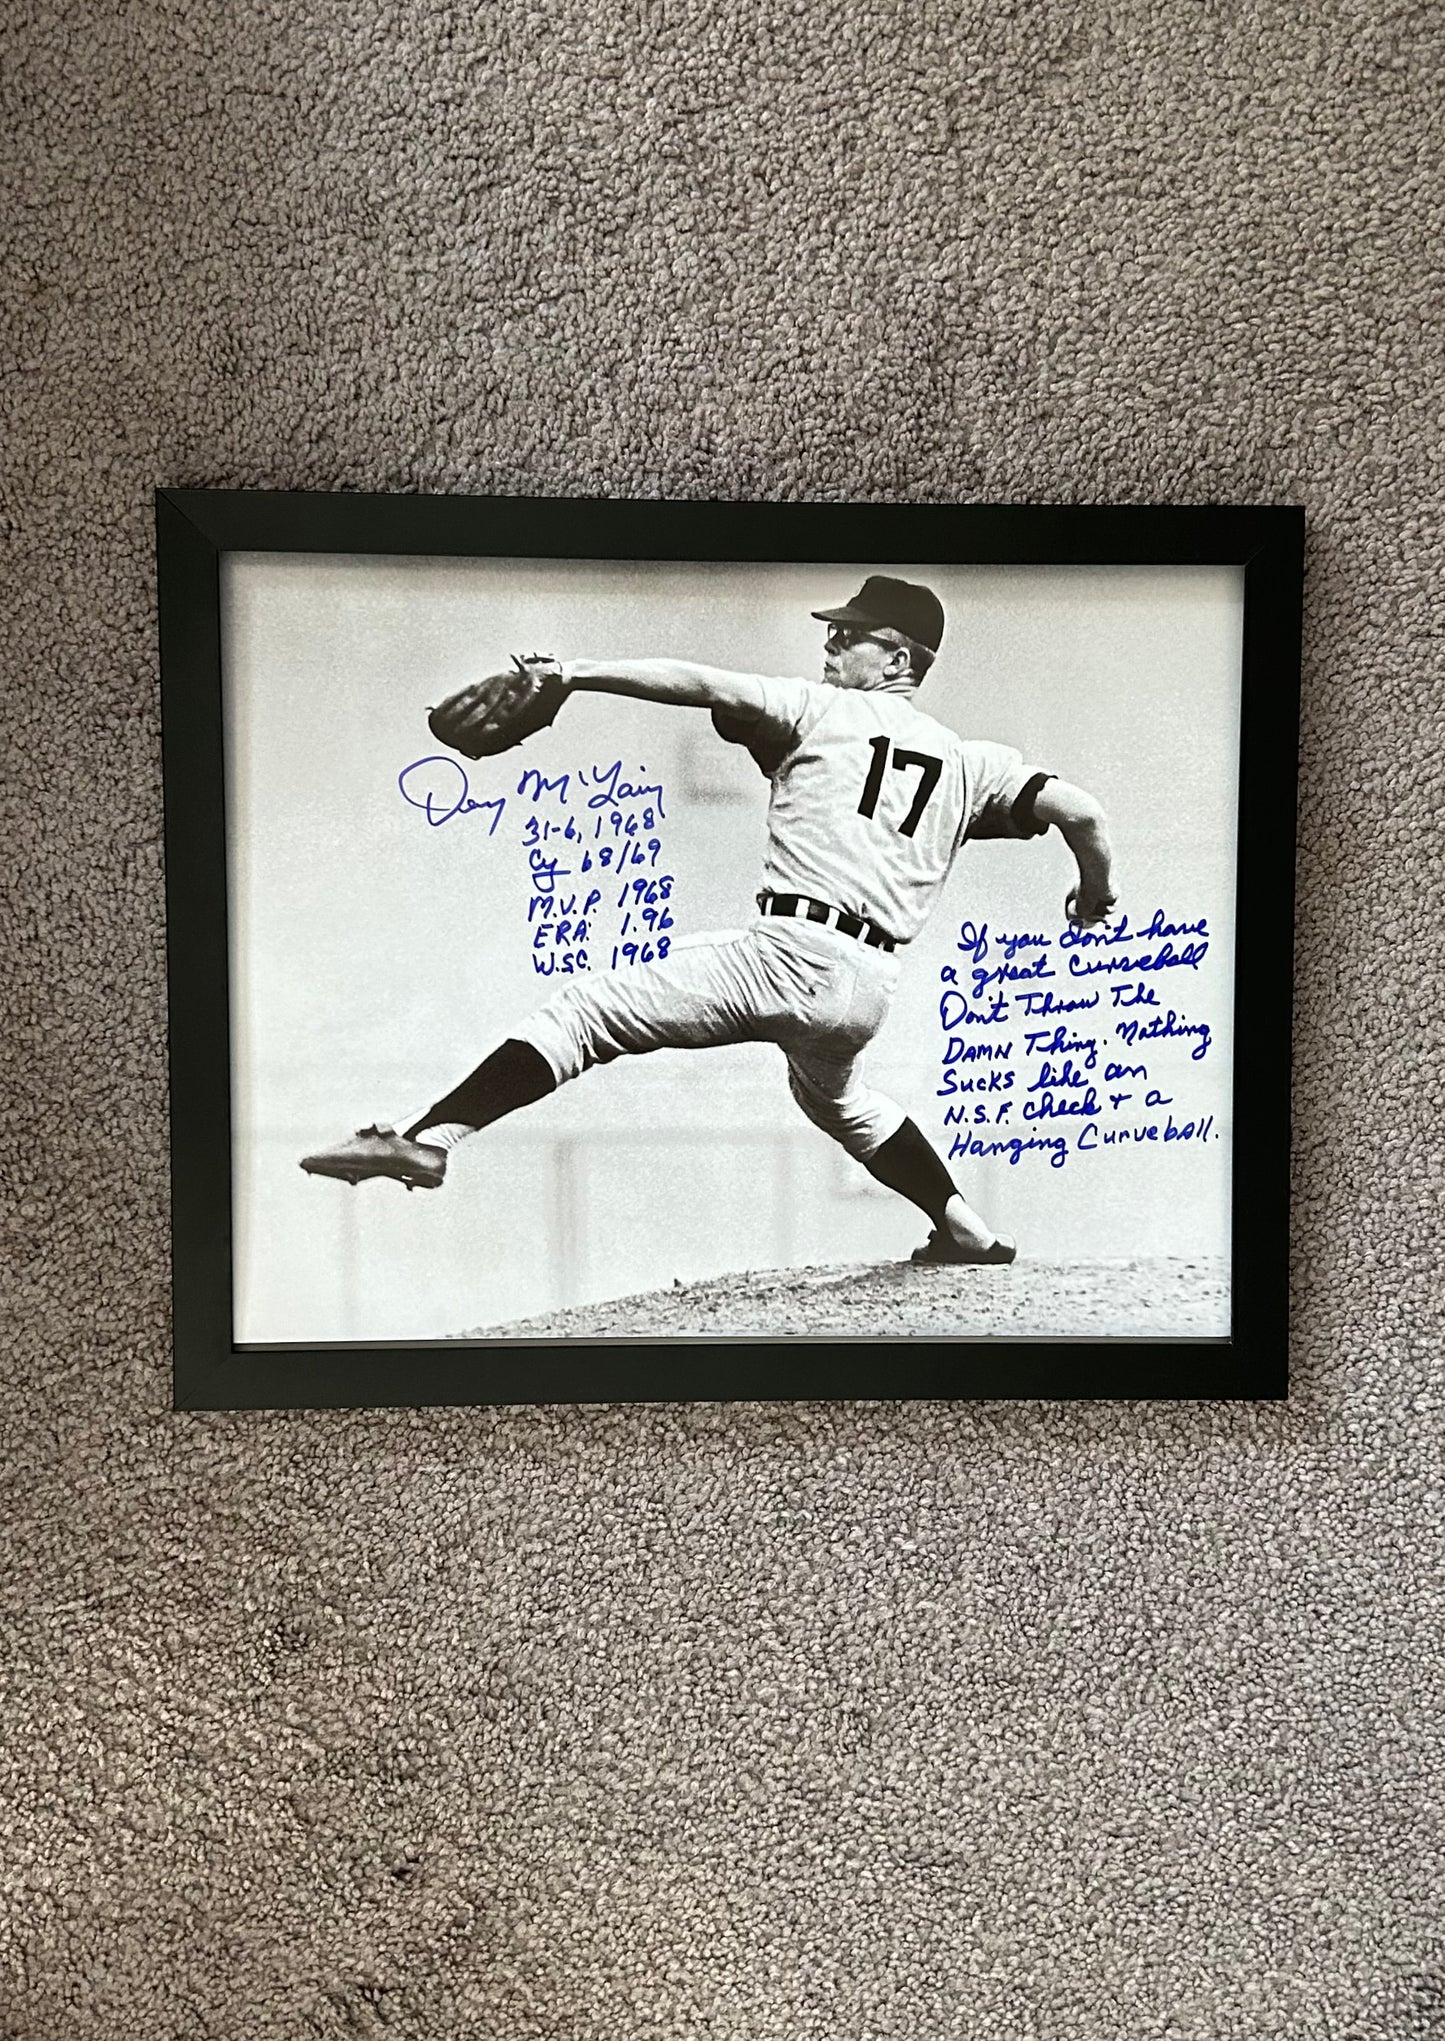 17
Denny McLain
31-6, 1968
Cy 68/69
M.V.P. 1968
ERA: 1.96
W.S.C. 1968
If you don't have
a great Curveball
Don't Throw The
DAMN Thing. Nothing
Sucks like an
N.S.F. check + a
Hanging Curveball.